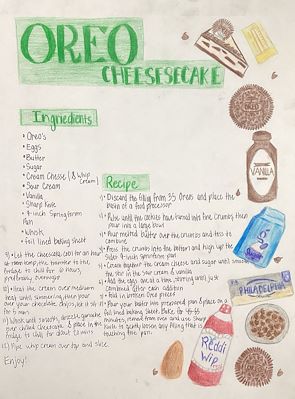 OREO
CHEESESECAKE
Ingredients
• Oreo's
• Eggs
• Butter
• Sugar
• Cream Cheese (& Whip Cream)
• Sour Cream
• Vanilla
• Sharp Knife
• 9-inch Springform Pan
• Whisk
• foil lined baking sheet
Recipe
1) Discard the filling from 35 Oreos and place the
2) Pulse until the cookies have turned into fine crumbs then
pour into a large bowl
3) Pour melted butter over the crumbs and toss to
combine
4) Press the crumbs into the bottom and high up the
sides 9-inch springform pan
5) Cream together the cream cheese and sugar until smooth
6) Add the eggs one at a time, stirring until just
combined after each addition
7) Fold in broken Oreo pieces
8) Pour batter into prepared pan & place on a
foil lined baking sheet. Bake for
minutes, remove from oven and use sharp
knife to gently loosen any filling that is
touching the pan.
9) Let the cheesecake cool for an hour
fridge to chill for 6 hours,
preferably overnight
10) Heat the cream over medium
heat until simmering, then pour
over your chocolate
for 5 min
11) Whisk until smooth,
over chilled cheesecake & place in the
fridge to chill for about 10 mins
12) Pipe whip cream over top and slice.
Enjoy!
OREO
VANILLA
Sugar
PHILADELPHIA
REddi
Wip